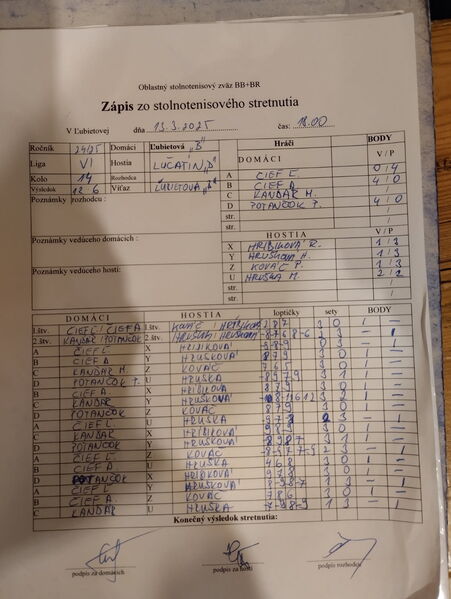 Oblastný stolnotenisový zväz BB+BR
Zápis zo stolnotenisového stretnutia
V Ľubietovej dňa 13.3.2025 čas: 18.00
Ročník 24/25 Domáci Ľubietová "B"
Liga VI Hostia LUČATÍN "D"
Kolo 14 Rozhodca
Výsledok 12 6 Víťaz ĽUBIETOVÁ "B"
Poznámky rozhodcu:
Poznámky vedúceho domácich:
Poznámky vedúceho hostí:
Hráči BODY
DOMÁCI V / P
A CIEF Ľ. 0 / 4
B CIEF A. 4 / 0
C KANDÁR M.
D POTANČOK P. 4 / 0
str. /
str. /
HOSTIA V / P
X HRIBIKOVÁ R. 1 / 3
Y HRUŠKOVÁ H. 1 / 3
Z KOVÁČ P. 1 / 3
U HRUŠKA M. 2 / 2
str. /
str. /
DOMÁCI HOSTIA loptičky sety BODY
1.štv. CIEF Ľ / CIEF A 1.štv. KOVÁČ / HRIBIKOVÁ 3 0 1 –
2.štv. KANDÁR / POTANČOK 2.štv. HRUŠKA / HRUŠKOVÁ 2 3 – 1
A CIEF Ľ. X HRIBIKOVÁ 0 3 – 1
B CIEF A. Y HRUŠKOVÁ 8 7 9 3 0 1 –
C KANDÁR M. Z KOVÁČ 7 6 5 3 0 1 –
D POTANČOK P. U HRUŠKA 3 1 1 –
B CIEF A. X HRIBIKOVÁ 8 7 9 3 0 1 –
C KANDÁR Y HRUŠKOVÁ 3 2 1 –
D POTANČOK Z KOVÁČ 8 7 9 3 0 1 –
A CIEF Ľ U HRUŠKA 3 – 1
C KANDÁR X HRIBIKOVÁ 9 8 9 3 0 1 –
D POTANČOK Y HRUŠKOVÁ 3 1 1 –
A CIEF Ľ. Z KOVÁČ 2 3 – 1
B CIEF A U HRUŠKA 4 6 8 3 0 1 –
D POTANČOK X HRIBIKOVÁ 3 0 1 –
A CIEF Ľ Y HRUŠKOVÁ 1 3 – 1
B CIEF A. Z KOVÁČ 7 8 6 3 0 1 –
C KANDÁR U HRUŠKA 1 3 – 1
Konečný výsledok stretnutia:
podpis za domácich podpis za hostí podpis rozhodcu